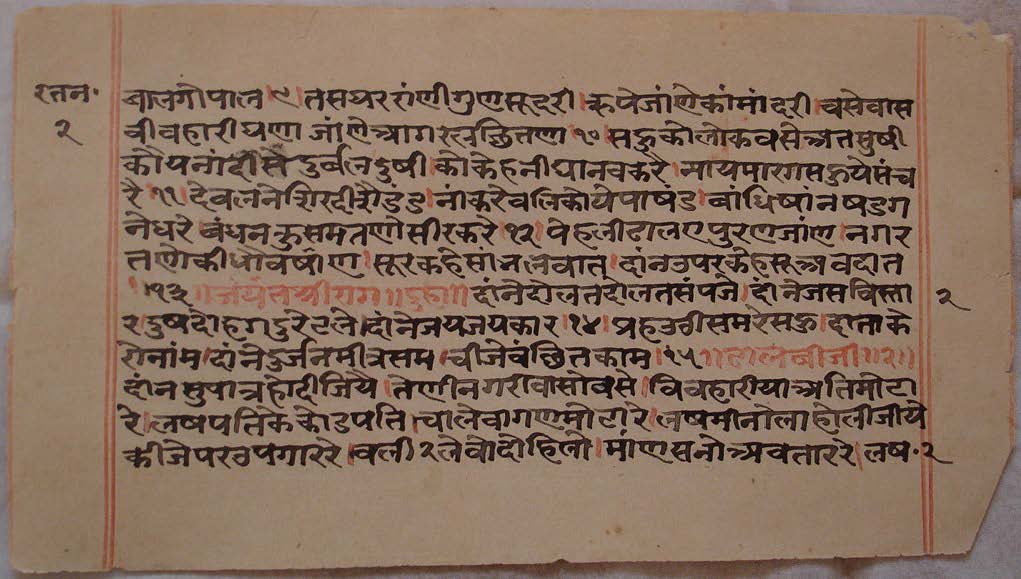 रतन॰
२
बालगोपाल ।९। तसघररांणीगुणसूंदरी। रूपेजांणेकांमांदरी। वसेवास
वीवहारीघणा जांणेआगरलूछितणा १० सहुकोलोकवसेअतसुषी
कोयनांदीसेदुर्बलदुषी। कोकेहनीघानवकरे। न्यायपारगसहुयेसंच
रे ११ देवलनेशिरदीसेडंड। नांकरेवलिकोयेपाषंड। बांधिषांनषडग
नेधरे बंधनकुसमतणोसीरकरे १२ पेहलीढालएपुरणजांण। नगर
तणोकीधोवषांण। सूरकहेसांनलेवात। दांनउपरकहसूअवदात
।१३ ॥जयतश्रीराग॥ ॥दुहा॥ दांनेदोलतदोलतसंपजे। दांनेजसविस्ता
र। दुषदोहगदुरेटले। दांनेजयजयकार १४ प्रहउवीसमरेसहु। दाताके
रोनांम। दांनेदुर्जनमीत्रसम। वीजेवंछितकाम १५॥ ढालबीजी॥२॥
दांनसुपात्रहोदीजिये। तणीनगरीवासोवसे। विवहारीयाअतिमोटा
रे। लषपतिकेकोडपति। चालेवागणमोटारे। लषमीनोलाहोलीजीये
कीजेपरउपगाररे। वली२लेवोदोहिलो। मांणसनोअवताररे। लष॰२
२